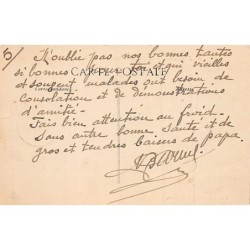 3/ N'oublie pas nos bonnes tantes
si bonnes et qui vieilles
CARTE POSTALE
et souvent malades ont besoin de
consolation et de démonstrations
d'amitié.
Fais bien attention au froid.
Sans autre bonne Santé et de
gros et tendres baisers de papa.